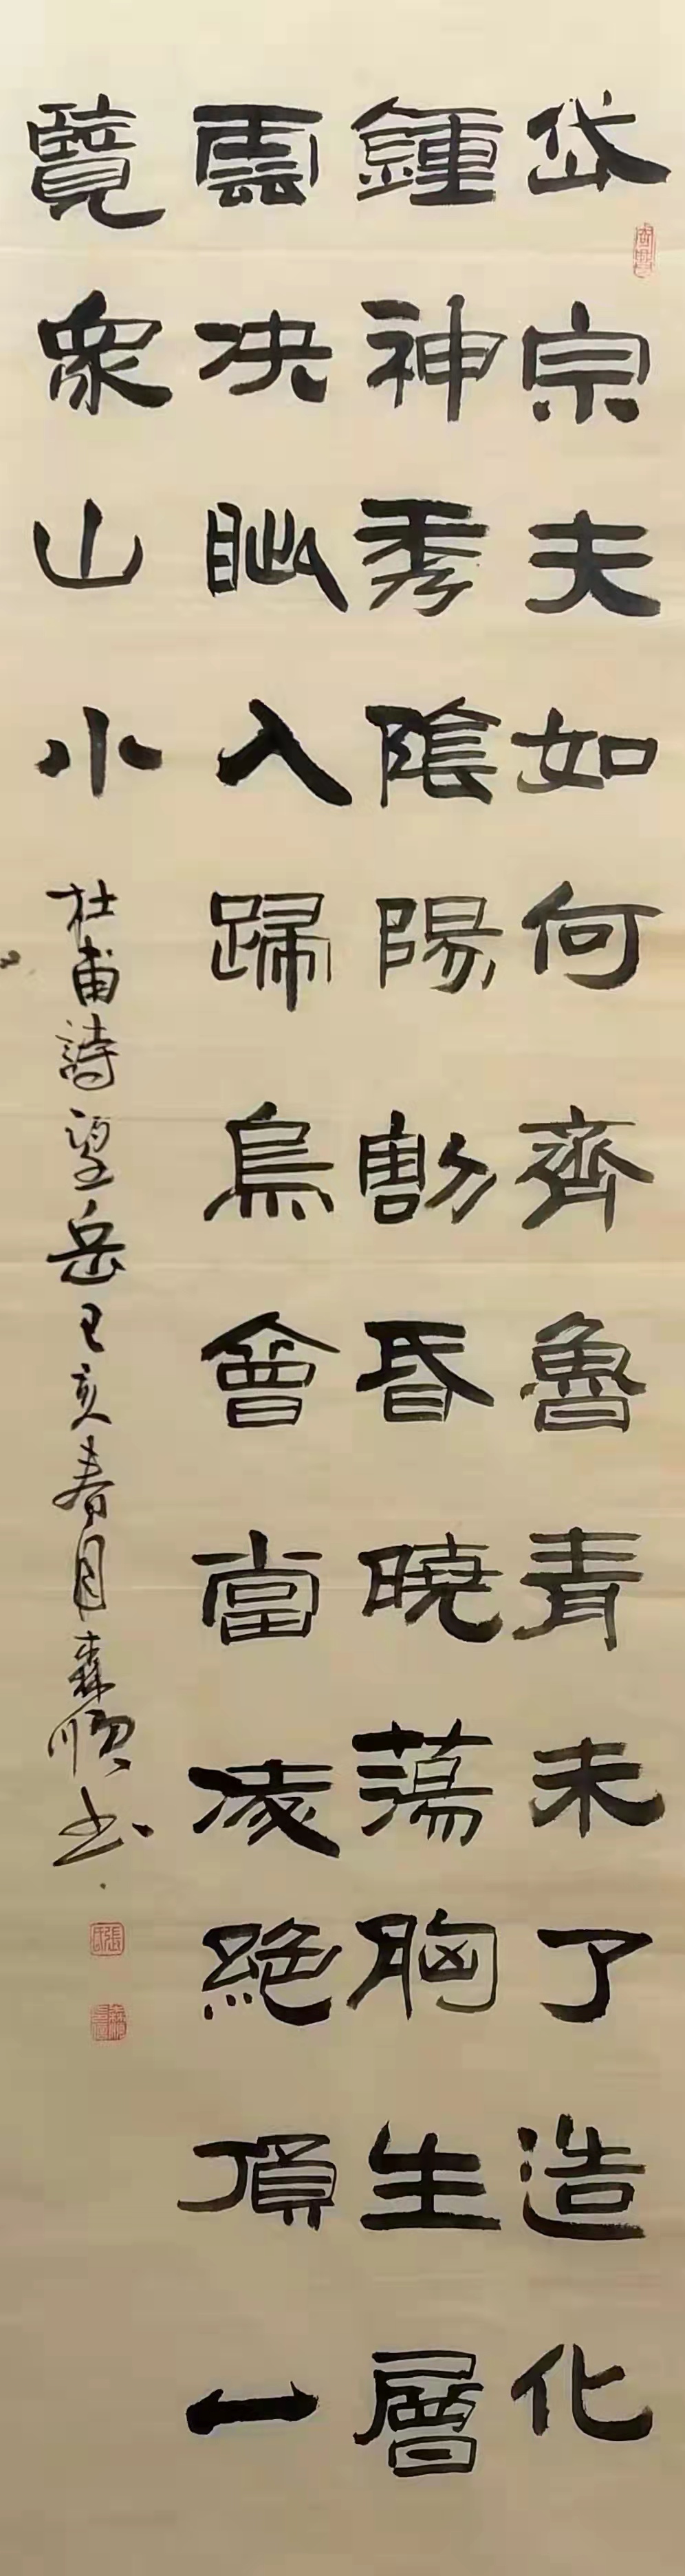 岱宗夫如何齊魯青未了造化
鍾神秀陰陽割昏曉蕩胸生層
雲決眦入歸鳥會當凌絕頂一
覽衆山小
杜甫詩望岳己亥春月森順书
張氏